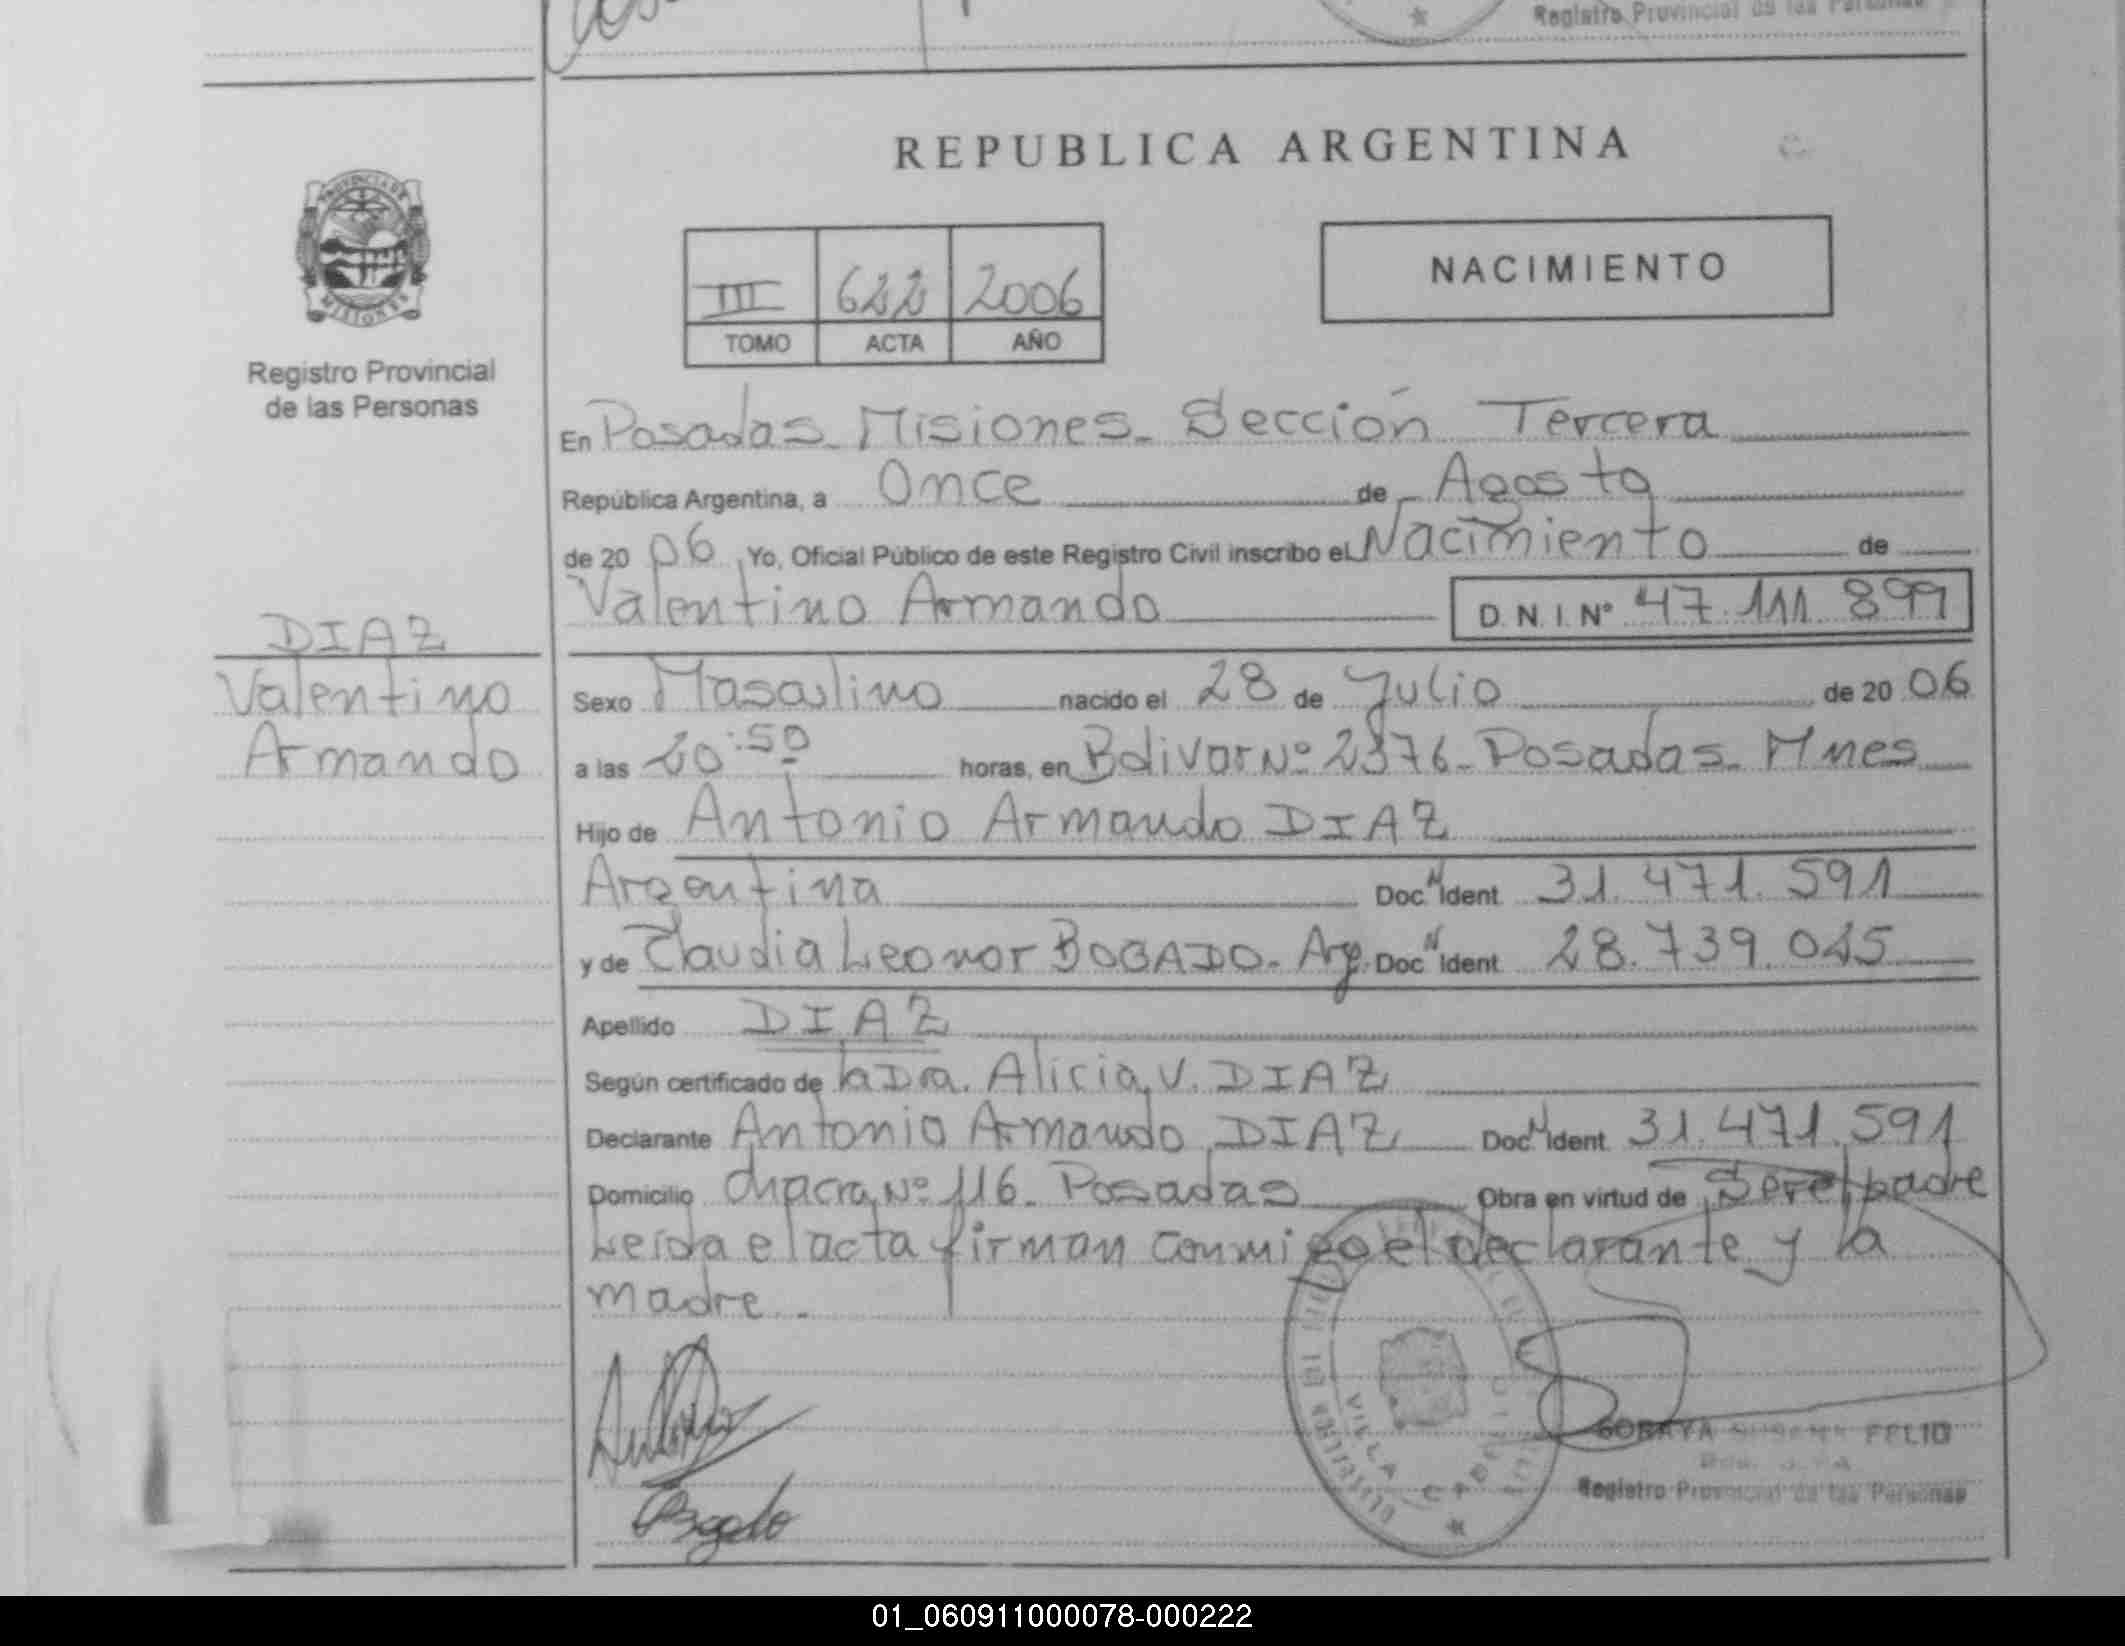 Registro Provincial de las Personas
REPUBLICA ARGENTINA
PROVINCIA DE
MISIONES
Registro Provincial
de las Personas
III 622 2006
TOMO ACTA AÑO
NACIMIENTO
En Posadas. Misiones. Sección Tercera
República Argentina, a Once de Agosto
de 20 06 Yo, Oficial Público de este Registro Civil inscribo el Nacimiento de
Valentino Armando D.N.I. Nº 47.111.899
DIAZ
Valentino
Armando
Sexo Masculino nacido el 28 de Julio de 20 06
a las 20:50 horas, en Bolivar Nº 2376. Posadas. Mnes
Hijo de Antonio Armando DIAZ
Argentina Doc. N Ident 31.471.591
y de Claudia Leonor BOGADO. Arg. Doc. N Ident 28.739.025
Apellido DIAZ
Según certificado de la Dra. Alicia V. DIAZ
Declarante Antonio Armando DIAZ Doc. N Ident 31.471.591
Domicilio chacra Nº 116. Posadas Obra en virtud de Ser el padre
Leída el acta firman conmigo el declarante y la
madre.
Bogado
VILLA CABELLO
SORAYA SUSANA FELIO
Registro Provincial de las Personas
01_060911000078-000222